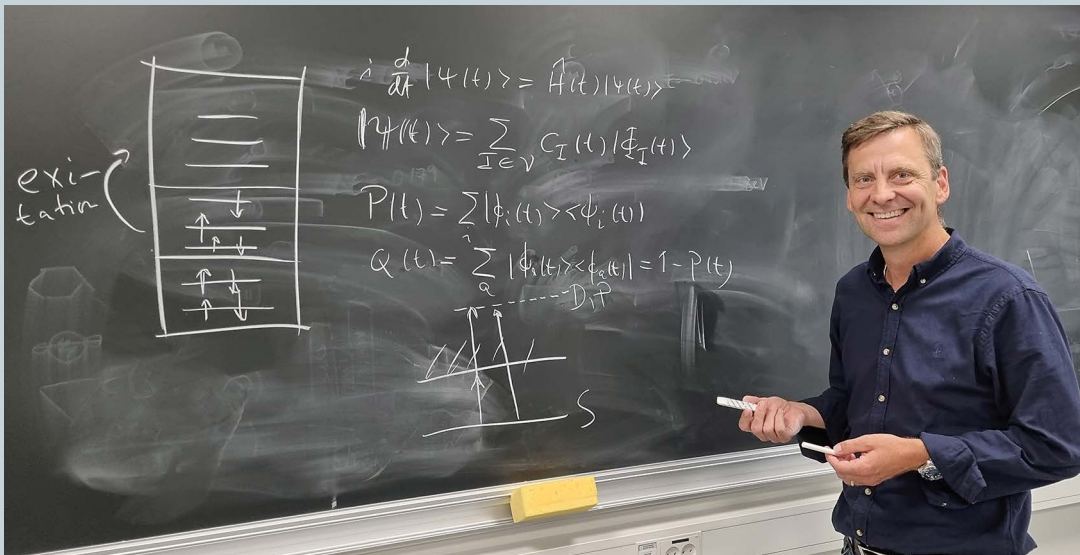 exi-
tation
i d/dt |Ψ(t)> = Ĥ(t)|Ψ(t)>
|Ψ(t)> = Σ_{I∈V} C_I(t)|Φ_I(t)>
P(t) = Σ_i |ϕ_i(t)><ϕ_i(t)|
Q(t) = Σ_a |ϕ_a(t)><ϕ_a(t)| = 1-P(t)
D,P
S